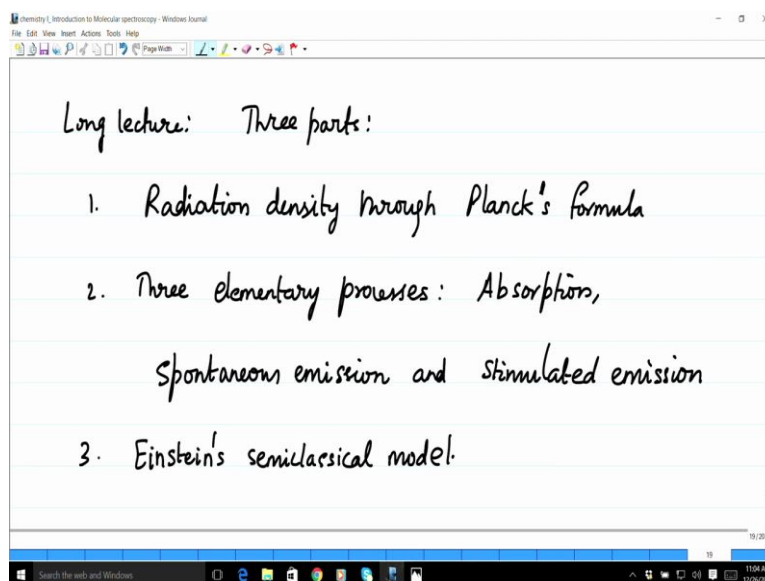 chemistry I_ Introduction to Molecular spectroscopy - Windows Journal
File Edit View Insert Actions Tools Help
Page Width
Long lecture: Three parts:
1. Radiation density through Planck's formula
2. Three elementary processes: Absorption,
Spontaneous emission and stimulated emission
3. Einstein's semiclassical model.
19/20
19
Search the web and Windows
11:04 A